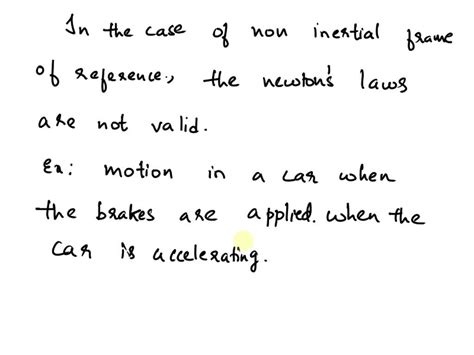 In the case of non inertial frame
of reference, the newton's laws
are not valid.
Ex: motion in a car when
the brakes are applied. when the
car is accelerating.